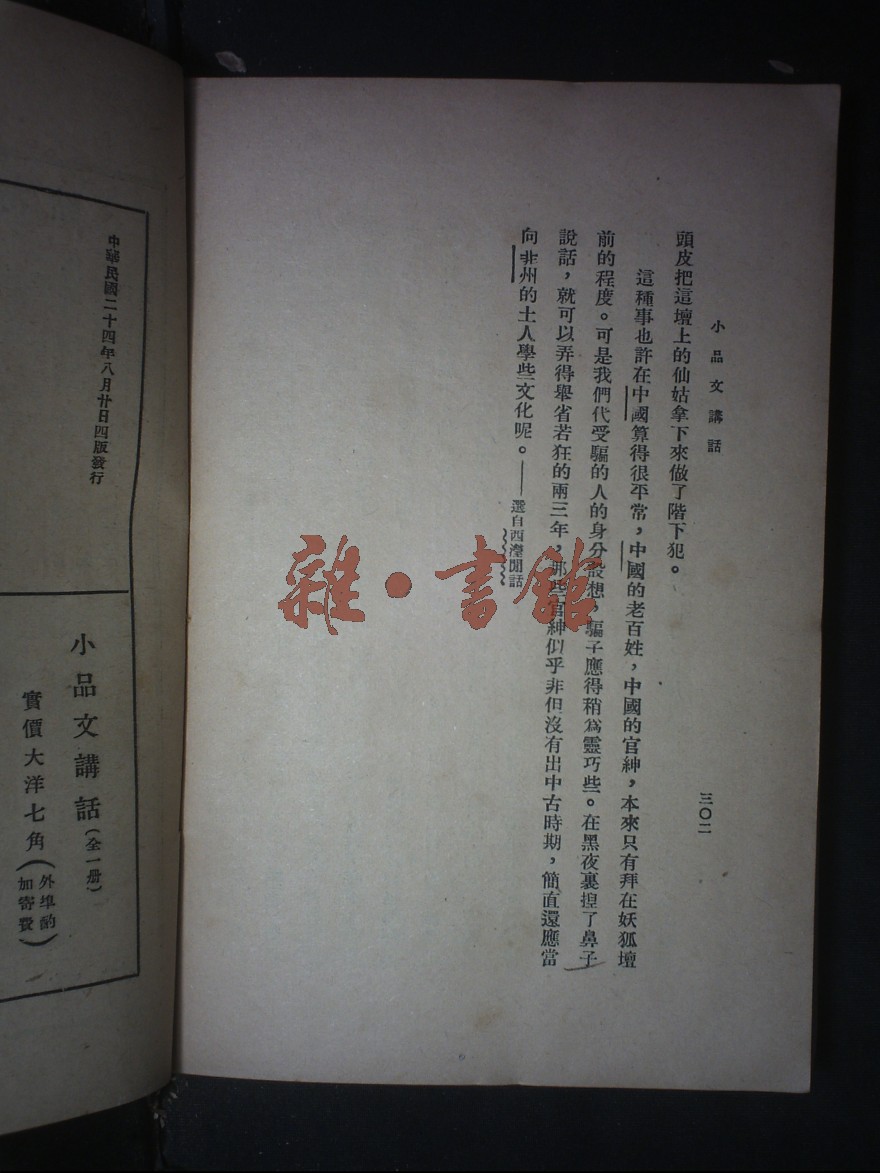 小品文講話
三〇二
頭皮把這壇上的仙姑拿下來做了階下犯。
這種事也許在中國算得很平常，中國的老百姓，中國的官紳，本來只有拜在妖狐壇
前的程度。可是我們代受騙的人的身分設想，騙子應得稍爲靈巧些。在黑夜裏揑了鼻子
說話，就可以弄得舉省若狂的兩三年，那些官紳似乎非但沒有出中古時期，簡直還應當
向非州的土人學些文化呢。——選自西瀅閒話
雜·書館
中華民國二十四年八月廿日四版發行
小品文講話（全一册）
實價大洋七角（外埠酌加寄費）